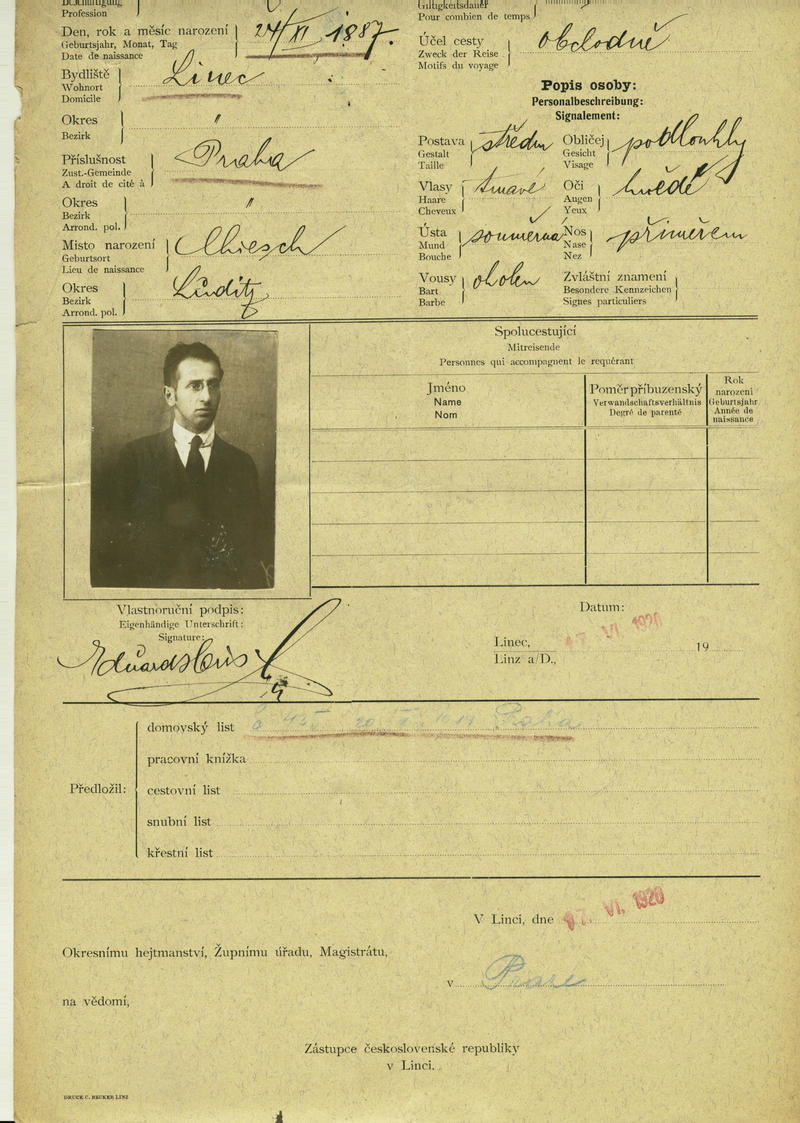 Profession
Den, rok a měsíc narození 24/XI 1887.
Geburtsjahr, Monat, Tag
Date de naissance
Bydliště Linec
Wohnort
Domicile
Okres "
Bezirk
Příslušnost Praha
Zust.-Gemeinde
A droit de cité à
Okres "
Bezirk
Arrond. pol.
Misto narození Chiesch
Geburtsort
Lieu de naissance
Okres Luditz
Bezirk
Arrond. pol.
Giltigkeitsdauer
Pour combien de temps
Účel cesty obchodně
Zweck der Reise
Motifs du voyage
Popis osoby:
Personalbeschreibung:
Signalement:
Postava střední Obličej podlouhlý
Gestalt Gesicht
Taille Visage
Vlasy tmavé Oči hnědé
Haare Augen
Cheveux Yeux
Ústa souměrná Nos přiměřen
Mund Nase
Bouche Nez
Vousy oholen Zvláštní znamení
Bart Besondere Kennzeichen
Barbe Signes particuliers
Spolucestující
Mitreisende
Personnes qui accompagnent le requérant
Jméno Poměr příbuzenský Rok narození
Name Verwandschaftsverhältnis Geburtsjahr
Nom Degré de parenté Année de naissance
Vlastnoruční podpis:
Eigenhändige Unterschrift:
Signature:
Eduard
Datum:
Linec, 17. VI. 1920 19
Linz a/D.,
Předložil:
domovský list Praha
pracovní knížka
cestovní list
snubní list
křestní list
V Linci, dne 17. VI. 1920
Okresnímu hejtmanství, Župnímu úřadu, Magistrátu,
v Praze
na vědomí,
Zástupce československé republiky
v Linci.
DRUCK C. BECKER LINZ